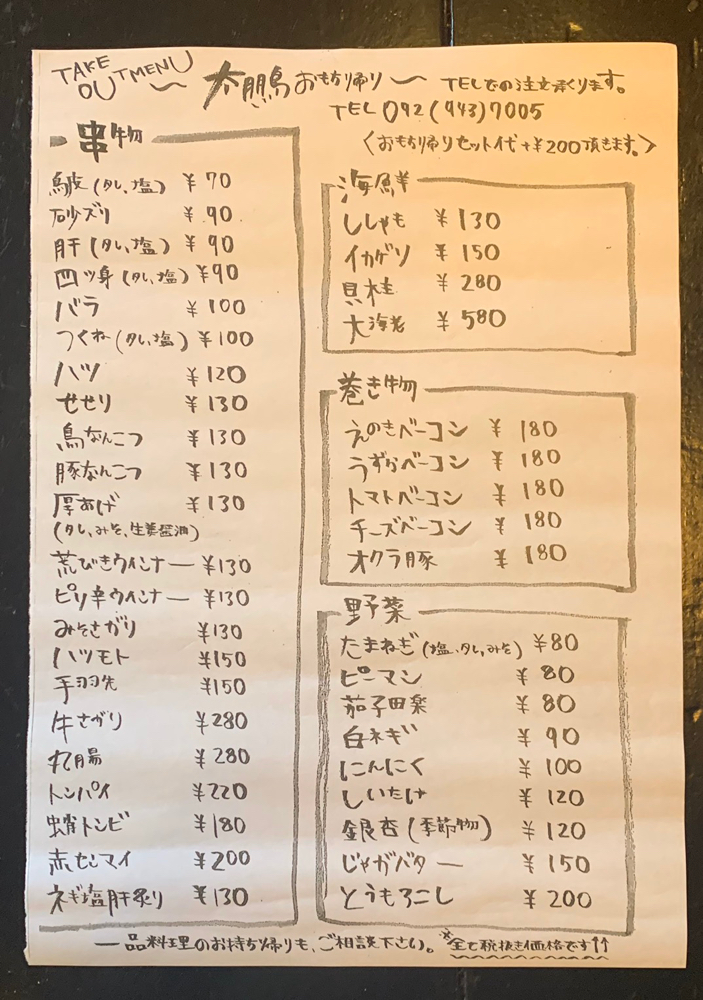 TAKE OUT MENU
大鵬鳥おもち帰り TELでの注文承ります。
TEL 092(943)7005
〈おもち帰りセット代+¥200頂きます。〉
串物
鳥皮(タレ、塩) ¥70
砂ズリ ¥90
肝(タレ、塩) ¥90
四ツ身(タレ、塩) ¥90
バラ ¥100
つくね(タレ、塩) ¥100
ハツ ¥120
せせり ¥130
鳥なんこつ ¥130
豚なんこつ ¥130
厚あげ ¥130
(タレ,みそ,生姜醤油)
荒びきウインナー ¥130
ピリ辛ウインナー ¥130
みそさがり ¥130
ハツモト ¥150
手羽先 ¥150
牛さがり ¥280
丸腸 ¥280
トンパイ ¥220
蛸トンビ ¥180
赤センマイ ¥200
ネギ塩肝炙り ¥130
海鮮
ししゃも ¥130
イカゲソ ¥150
貝柱 ¥280
大海老 ¥580
巻き物
えのきベーコン ¥180
うずらベーコン ¥180
トマトベーコン ¥180
チーズベーコン ¥180
オクラ豚 ¥180
野菜
たまねぎ(塩、タレ,みそ) ¥80
ピーマン ¥80
茄子田楽 ¥80
白ネギ ¥90
にんにく ¥100
しいたけ ¥120
銀杏(季節物) ¥120
じゃがバター ¥150
とうもろこし ¥200
一品料理のお持ち帰りも、ご相談下さい。 ※全て税抜き価格です↑↑